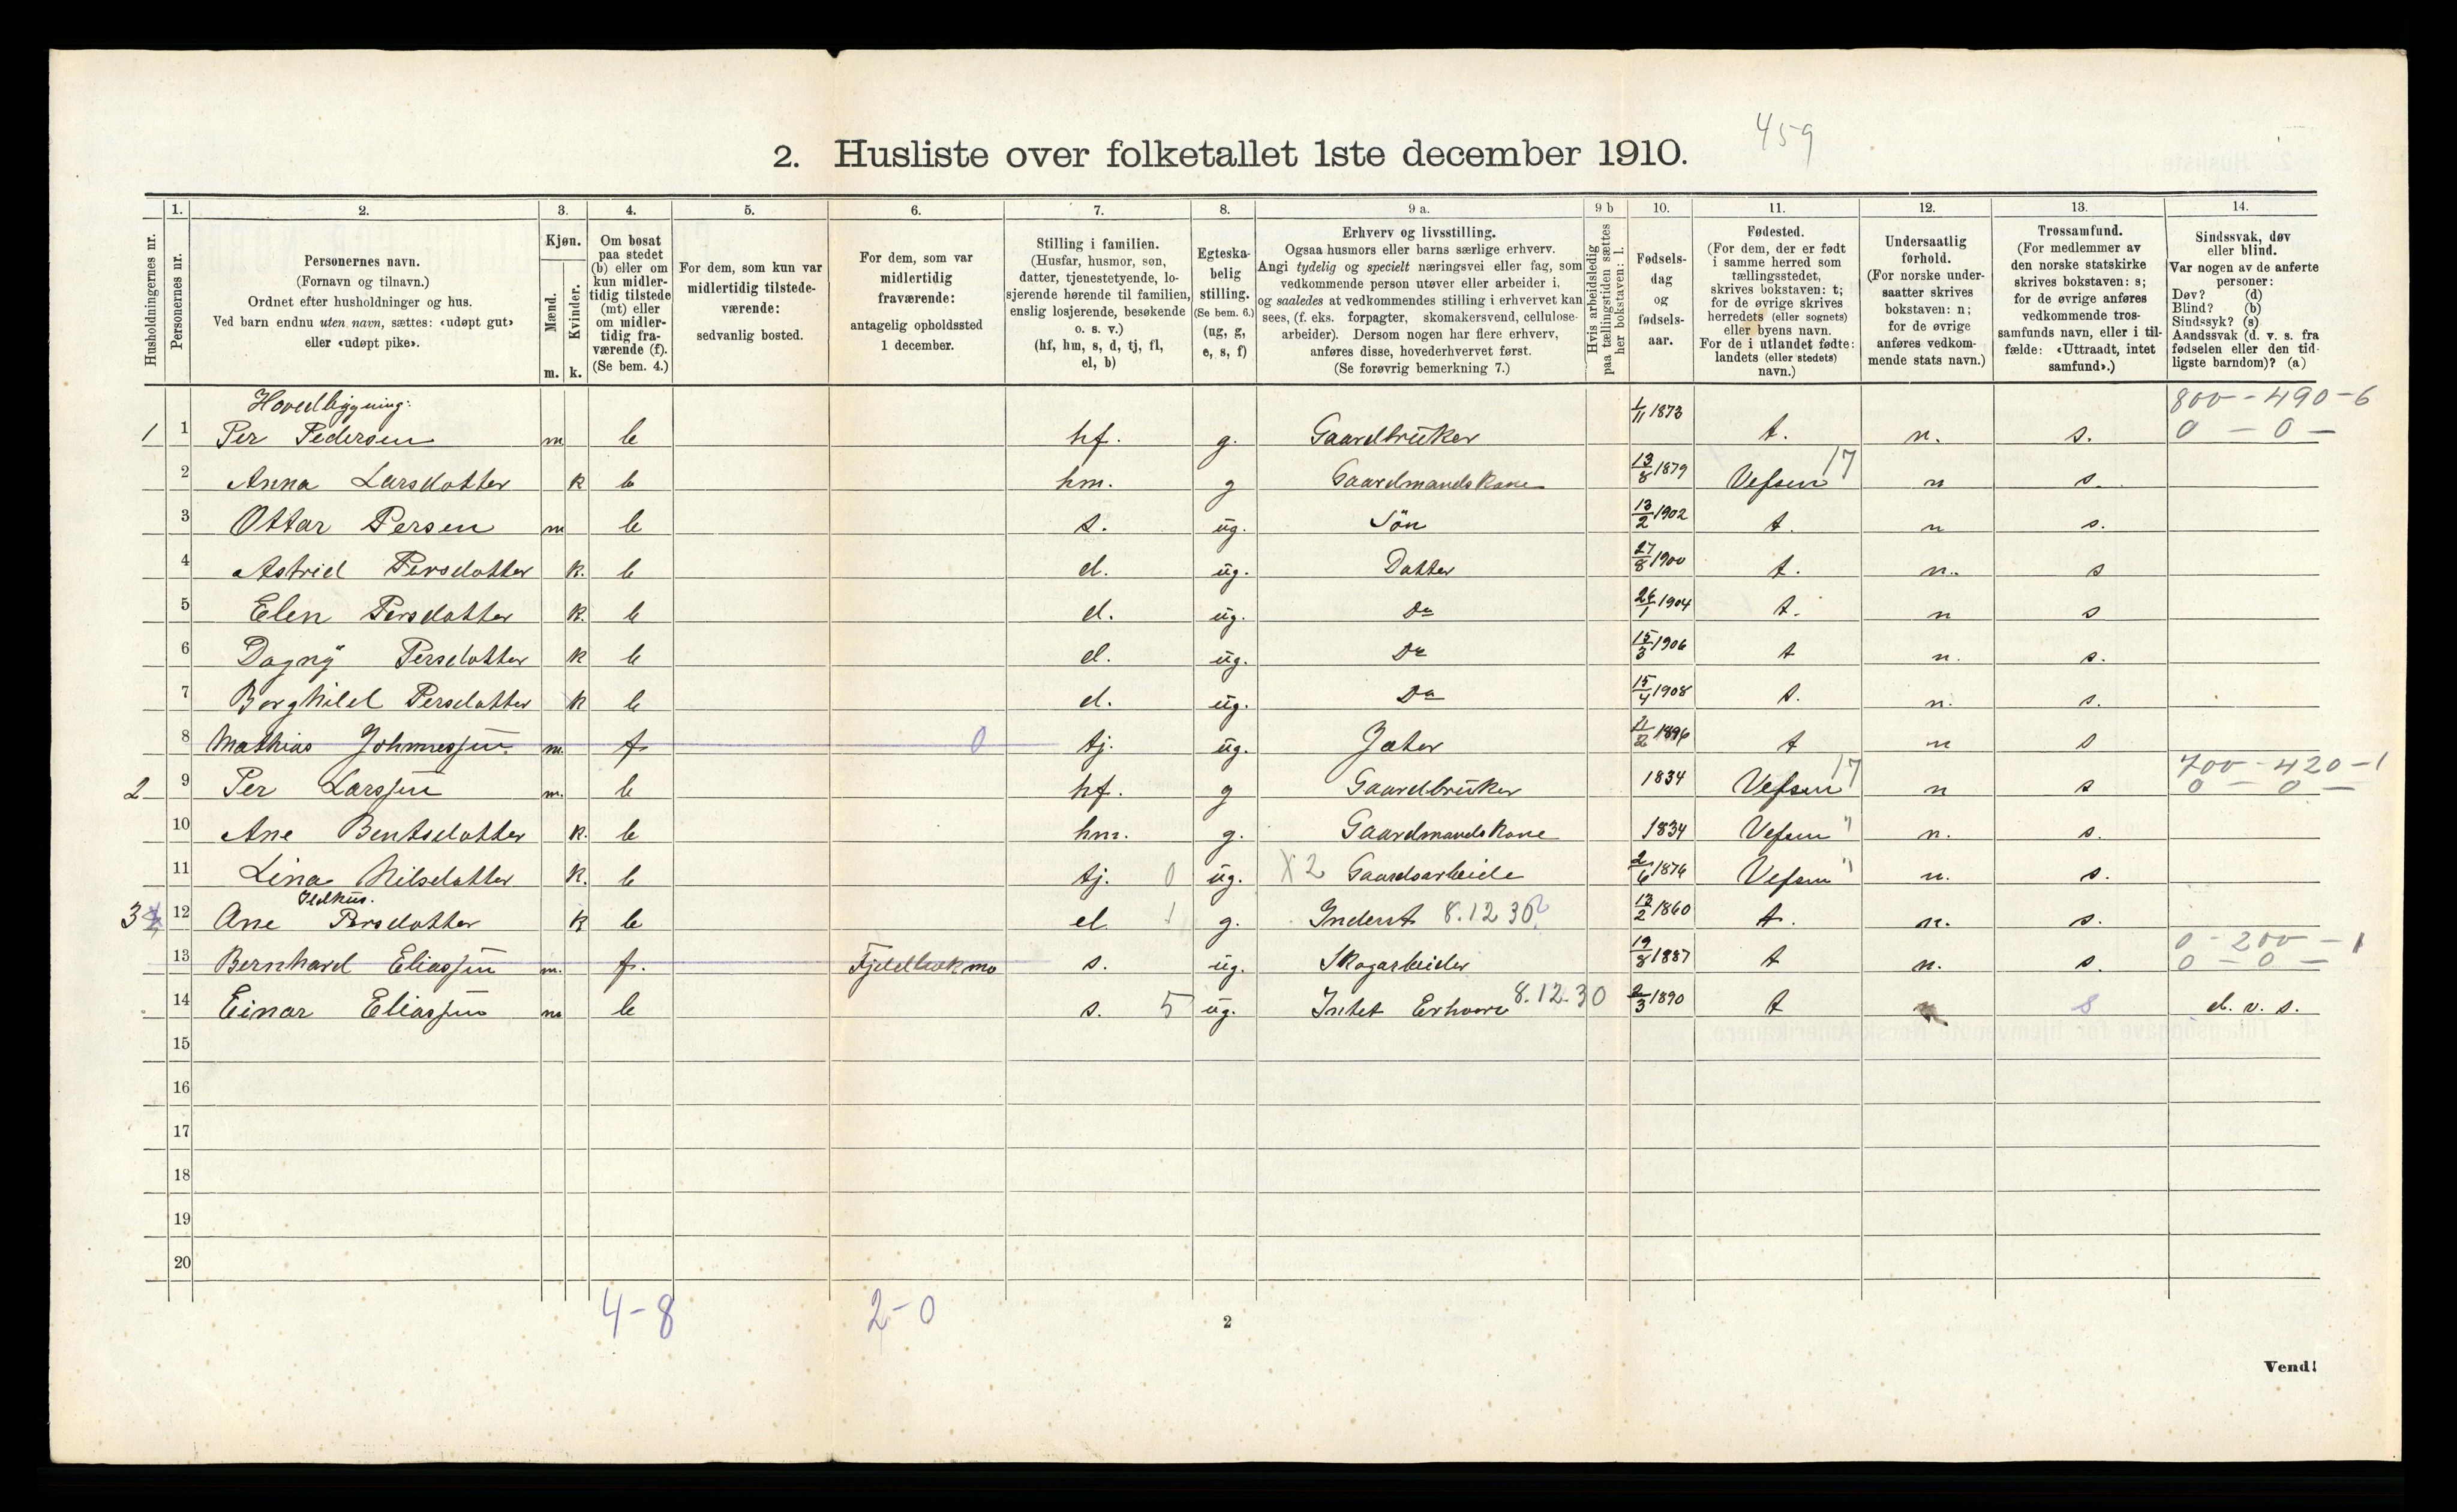 459
2. Husliste over folketallet 1ste december 1910.
Husholdningernes nr.
1.
Personernes nr.
2.
Personernes navn.
(Fornavn og tilnavn.)
Ordnet efter husholdninger og hus.
Ved barn endnu uten navn, sættes: «udøpt gut»
eller «udøpt pike».
3.
Kjøn.
Mænd.
Kvinder.
m. k.
4.
Om bosat
paa stedet
(b) eller om
kun midler-
tidig tilstede
(mt) eller
om midler-
tidig fra-
værende (f).
(Se bem. 4.)
5.
For dem, som kun var
midlertidig tilstede-
værende:
sedvanlig bosted.
6.
For dem, som var
midlertidig
fraværende:
antagelig opholdssted
1 december.
7.
Stilling i familien.
(Husfar, husmor, søn,
datter, tjenestetyende, lo-
sjerende hørende til familien,
enslig losjerende, besøkende
o. s. v.)
(hf, hm, s, d, tj, fl,
el, b)
8.
Egteska-
belig
stilling.
(Se bem. 6.)
(ug, g,
e, s, f)
9 a.
Erhverv og livsstilling.
Ogsaa husmors eller barns særlige erhverv.
Angi tydelig og specielt næringsvei eller fag, som
vedkommende person utøver eller arbeider i,
og saaledes at vedkommendes stilling i erhvervet kan
sees, (f. eks. forpagter, skomakersvend, cellulose-
arbeider). Dersom nogen har flere erhverv,
anføres disse, hovederhvervet først.
(Se forøvrig bemerkning 7.)
9 b
Hvis arbeidsledig
paa tællingstiden sættes
her bokstaven: l.
10.
Fødsels-
dag
og
fødsels-
aar.
11.
Fødested.
(For dem, der er født
i samme herred som
tællingsstedet,
skrives bokstaven: t;
for de øvrige skrives
herredets (eller sognets)
eller byens navn.
For de i utlandet fødte:
landets (eller stedets)
navn.)
12.
Undersaatlig
forhold.
(For norske under-
saatter skrives
bokstaven: n;
for de øvrige
anføres vedkom-
mende stats navn.)
13.
Trossamfund.
(For medlemmer av
den norske statskirke
skrives bokstaven: s;
for de øvrige anføres
vedkommende tros-
samfunds navn, eller i til-
fælde: «Uttraadt, intet
samfund».)
14.
Sindssvak, døv
eller blind.
Var nogen av de anførte
personer:
Døv? (d)
Blind? (b)
Sindssyk? (s)
Aandssvak (d. v. s. fra
fødselen eller den tid-
ligste barndom)? (a)
Hovedbygning: 800 - 490 - 6
1 1 Per Pedersen m b hf. g. Gaardbruker 1/11 1873 t. n. s. 0 - 0 -
2 Anna Larsdatter k b hm. g Gaardmandskone 13/8 1879 Vefsen 17 n s.
3 Ottar Persen m b s. ug. Søn 13/2 1902 t. n s.
4 Astrid Persdatter k. b d. ug. Datter 27/8 1900 t. n. s
5 Elen Persdatter k. b d. ug. Do 26/1 1904 t. n s
6 Dagny Persdatter k b d. ug. Do 15/3 1906 t n. s.
7 Borghild Persdatter k b d. ug. Do 15/4 1908 t. n. s.
8 Mathias m. f 0 tj. ug. Jæter 1896 t n s
700 - 420 - 1
2 9 Per Larssen m. b hf. g Gaardbruker 1834 Vefsen 17 n s 0 - 0 -
10 Ane Bentsdatter k. b hm. g. Gaardmandskone 1834 Vefsen " n. s.
11 Lina Nilsdatter k. b tj. 0 ug. X2 Gaardsarbeide 2/6 1876 Vefsen " n. s.
Ildhus.
3 12 Ane Persdatter k b el 1 g. Inderst 8.12 30? 13/2 1860 t. n. s.
0 - 200 - 1
13 Bernhard Eliassen m. f. s. ug. Skogarbeider 19/8 1887 t n. s. 0 - 0 -
14 Einar Eliassen m b s. 5 ug. Intet Erhverv 8.12.30 2/3 1890 t n s d. v. s.
15
16
17
18
19
20
4-8 2-0
2
Vend!